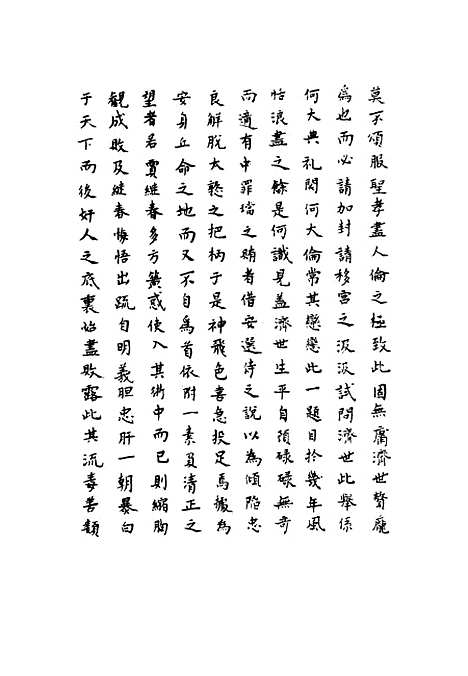 莫不頌服聖孝盡人倫之極致此固無膚濟世聲龐
為也而必請加封請移宮之汲汲試問濟世此舉係
何大典礼関何大倫常其戀戀此一題目於幾年風
恬浪盡之餘是何識見盖濟世生平自預碌碌無奇
而適有中罪璫之賄者借安選侍之說以為傾陷忠
良解脫大憝之把柄于是神飛色喜急投足焉據為
安身立命之地而又不自為首依附一素負清正之
望者名賈継春多方簧惑使入其術中而已則縮胸
觀成敗及継春悔悟出疏自明義胆忠肝一朝暴白
于天下而後奸人之底裏始盡敗露此其流毒善類